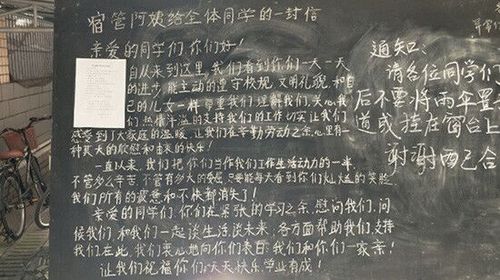 宿管阿姨给全体同学的一封信
亲爱的同学们,你们好!
自从来到这里,我们看到你们一天一天
的进步,能主动的遵守校规,文明礼貌,和自
己的儿女一样尊重我们,理解我们,关心我
们,热情洋溢的支持我们的工作,切实让我们
感受到了大家庭的温暖,让我们在辛勤劳动之余,心里有一
种莫大的欣慰和由衷的快乐!
一直以来,我们把你们当作我们工作生活动力的一半,
不管多么辛苦,不管有多大的委屈,只要能每天看到你们灿烂的笑脸,
我们所有的疲惫和不快都消失了!
亲爱的同学们,你们在紧张的学习之余,慰问我们,问
候我们,和我们一起谈生活谈未来,各方面帮助我们,支持
我们,在此,我们衷心地向你们表白:我们和你们一家亲!
让我们祝福你们:天天快乐,学业有成!
通知:
请各位同学们
后不要将雨伞置
道或挂在窗台上
谢谢西合